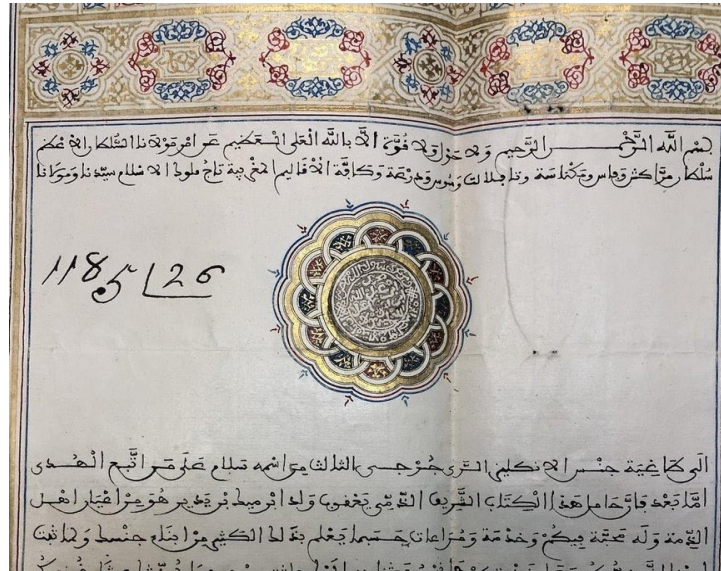 بسم الله الرحمن الرحيم ولا حول ولا قوة الا بالله العلي العظيم عن امر مولانا السلطان الاعظم
سلطان مراكش وفاس ومكناسة وتافلالت وسوس ودرعة وكافة الاقاليم المغربية تاج ملوك الاسلام سيدنا ومولانا
1185 26
الى طاغية جنس الانكليز الري جورجي الثالث من اسمه سلام على من اتبع الهدى
اما بعد فان حامل هذا الكتاب الشريف الذمي يعقوب ولد هو من اخيار اهل
الذمة وله محبة فيكم وخدمة ومراعات حسبما يعلم بذلك الكثير من ابناء جنسك ولما ثبت